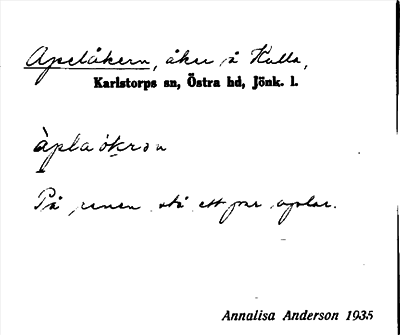 Apelåkern, åker å Kulla,
Karlstorps sn, Östra hd, Jönk. l.
àplaókrən
På renen stå ett par aplar.
Annalisa Anderson 1935